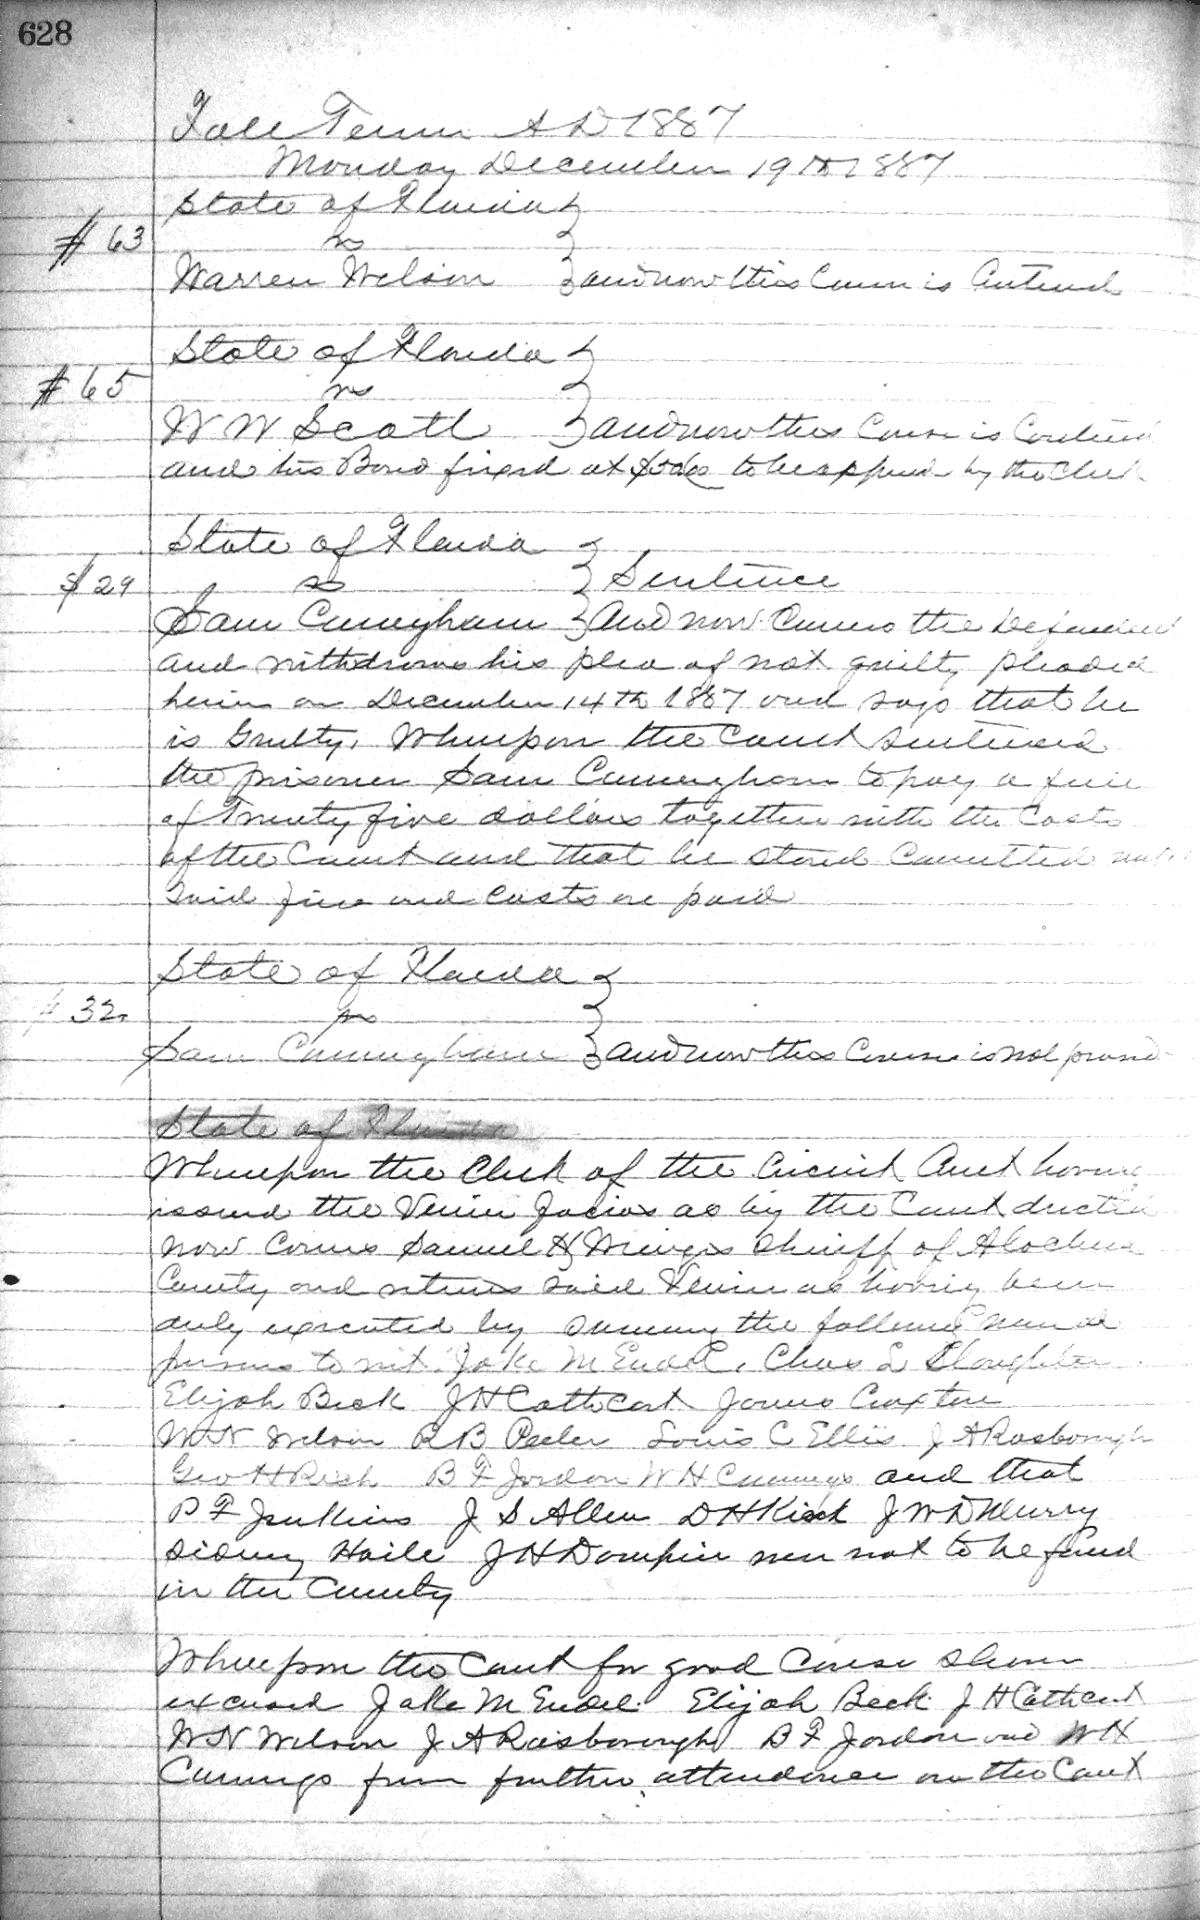 628
Fall Term A D 1887
Monday December 19th 1887
State of Florida
# 63 vs
Warren Wilson and now this Cause is Continued
State of Florida
# 65 vs
W W Scott and now this Cause is Continued
and his Bond fixed at to be approved by the Clerk
State of Florida
# 29 vs Sentence
Sam Cuningham And now Comes the Defendant
and withdraws his plea of not guilty pleaded
herein on December 14th 1887 and says that he
is Guilty, Whereupon the Court Sentenced
the prisoner Sam Cuningham to pay a fine
of Twenty five dollars together with the Costs
of the Court and that he stand Committed until
Said fine and Costs are paid
State of Florida
# 32 vs
Sam Cuningham and now this Cause is nol prossed
State of Florida
Whereupon the Clerk of the Circuit Court having
issued the Venire facias as by the Court directed
now Comes Samuel H Wienges Sheriff of Alachua
County and returns said Venire as having been
duly executed by summoning the following named
persons to wit. Jake M Endel, Chas L Slaughter
Elijah Beck J H Cathcart James Croxton
W N Wilson R B Peeler Louis C Ellis J A Rosborough
Geo H Rich B F Jordon W H Cumings and that
P F Jenkins J S Allen D H Kirk J W D Murry
Sidney Haile J H Dompier were not to be found
in the County
Whereupon the Court for good Cause Shown
excused Jake M Endel. Elijah Beck. J H Cathcart
W N Wilson J A Rosborough B F Jordon and W H
Cumings from further attendance on the Court